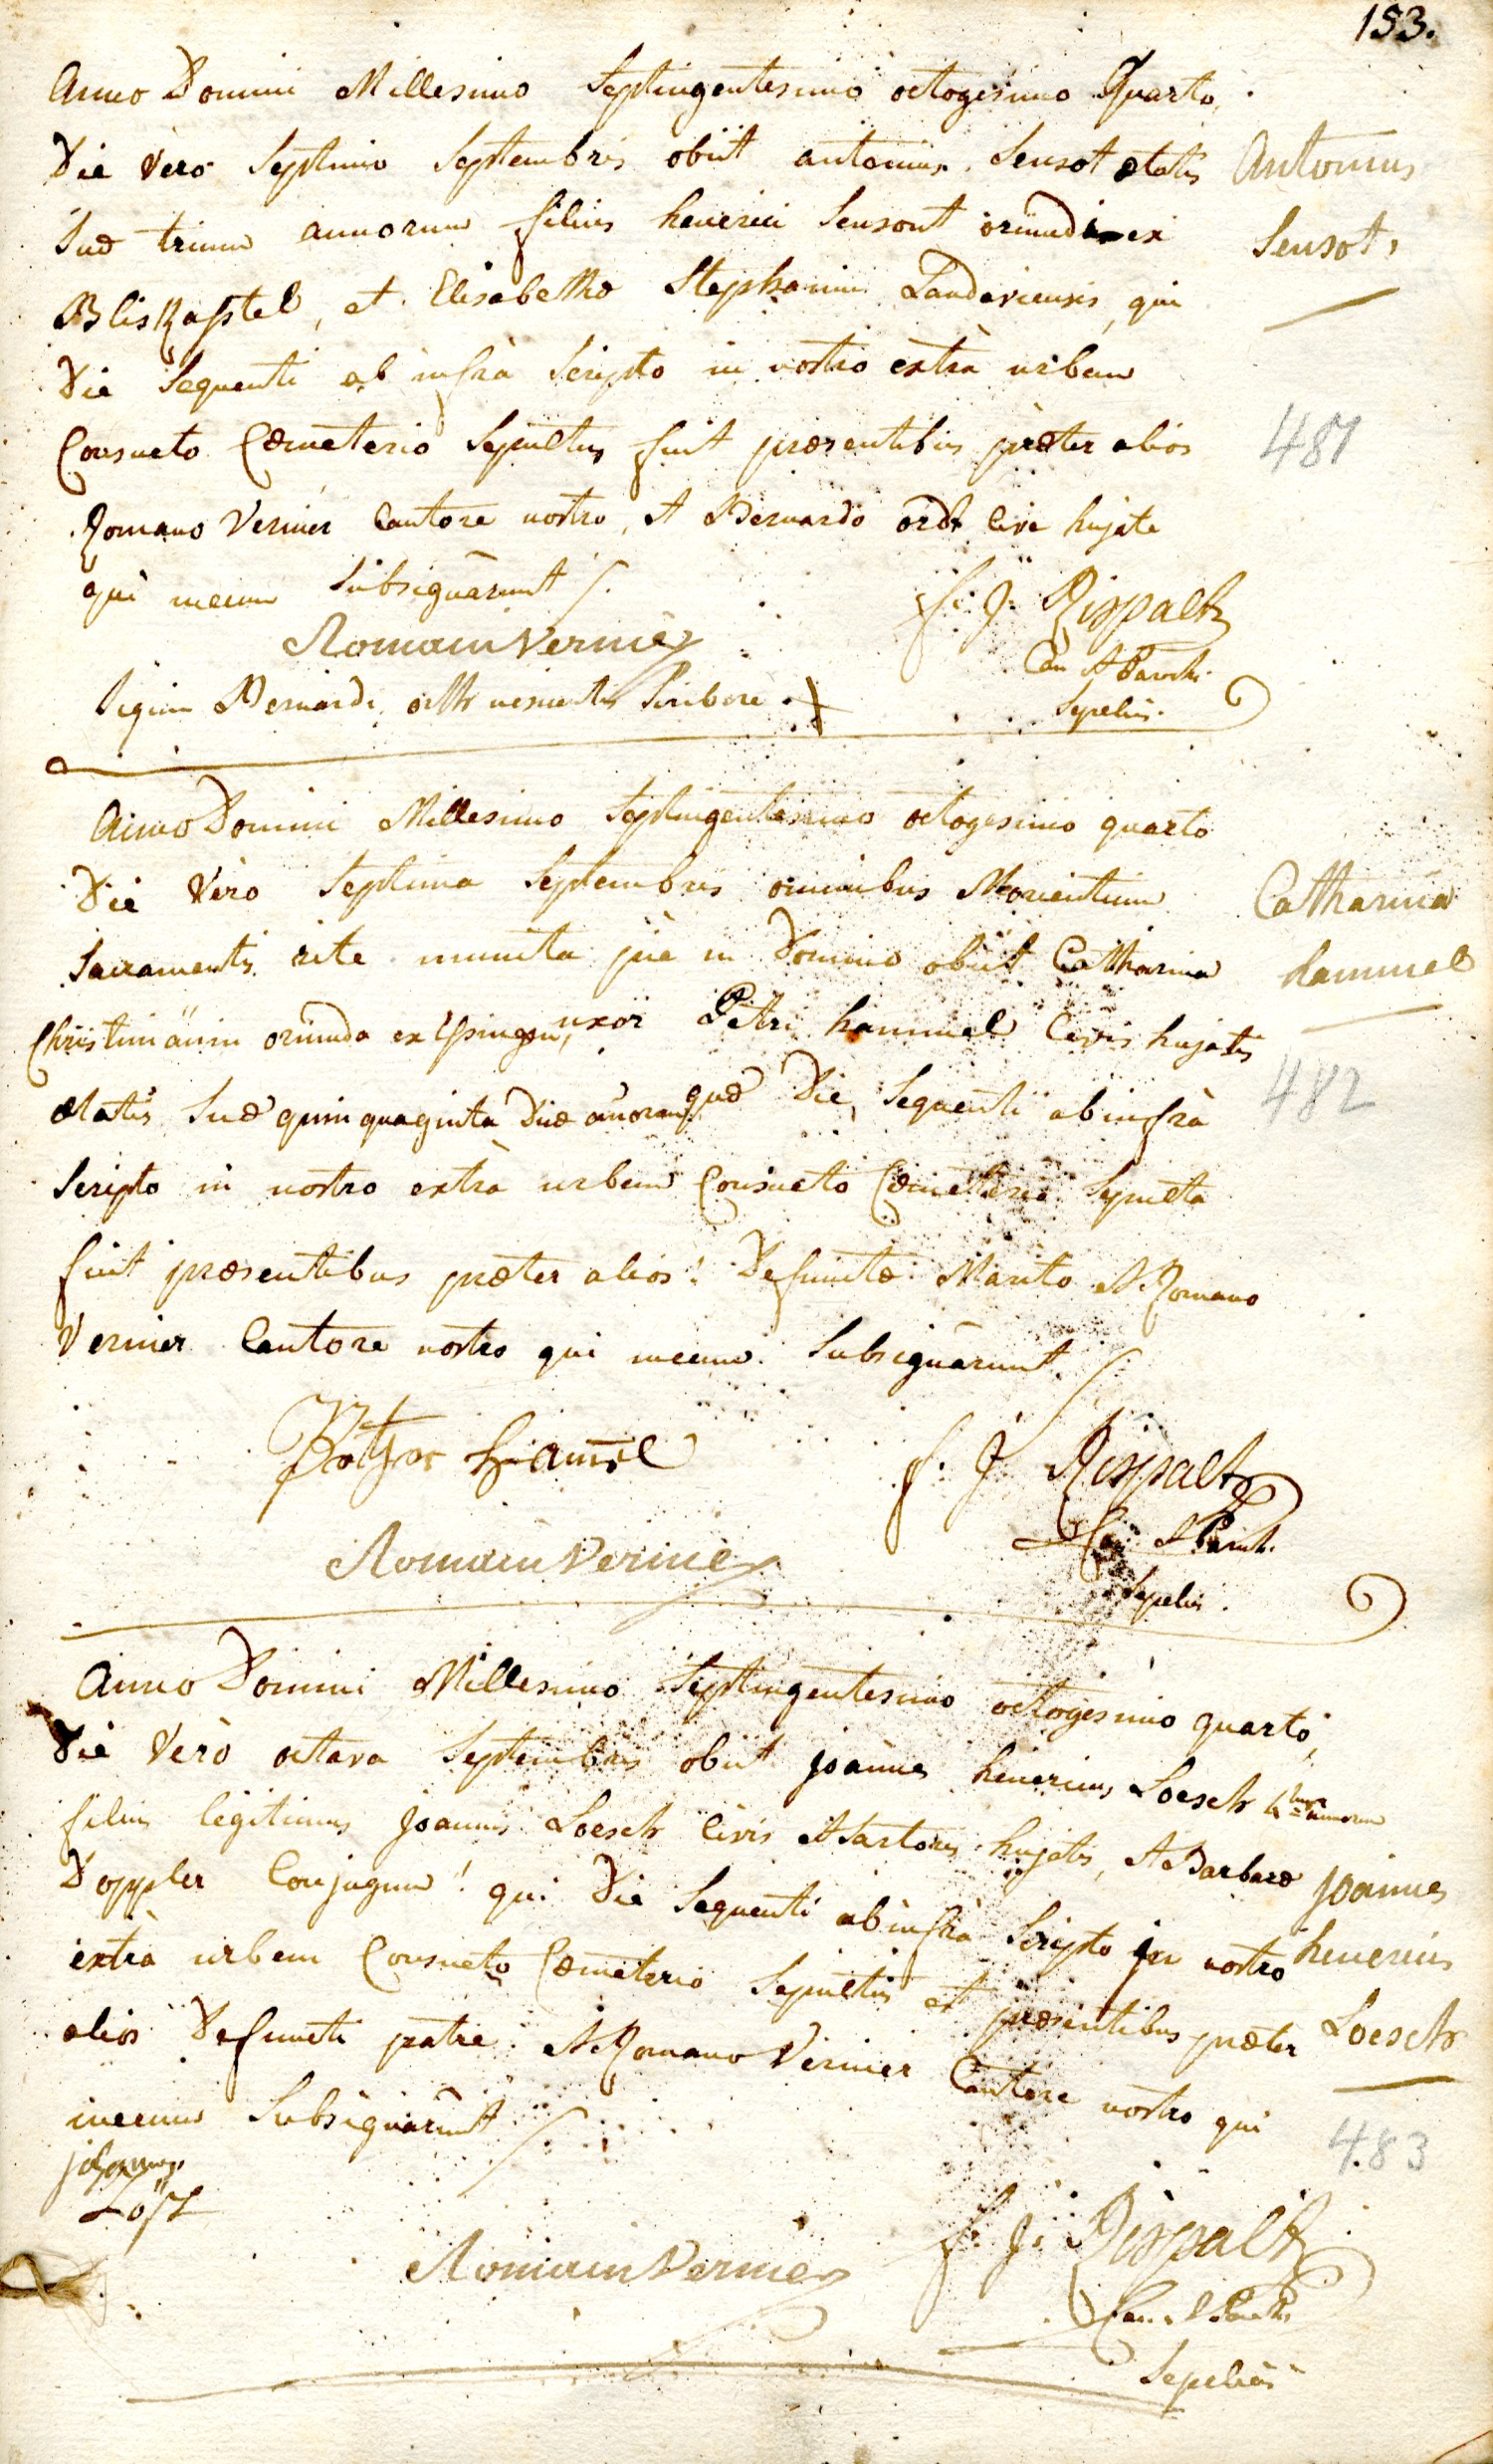 153.
Anno Domini Millesimo Septingentesimo octogesimo Quarto,
Die Vero Septimo Septembris obiit antonius Sensot ætatis
Suæ trium annorum filius henerici Sensont oriundi ex
Bliskastel, et Elisabethæ Stephanin Landaviensis, qui
Die Sequenti ab infrà Scripto in nostro extrà urbem
Consueto Cœmeterio Sepultus fuit præsentibus præter alios
Romano Vernier Cantore nostro, et Bernardo ordt Cive hujate
qui mecum Subsignârunt /.
Antonius
Sensot,
481
Romain Vernier
f: J: Rispalt
Can et Paroch.
Sepeliens.
Signum Bernardi orth nescientis Scribere . +
Anno Domini Millesimo Septingentesimo octogesimo quarto
Die Vero Septima Septembris omnibus Morientium
Sacramentis rite munita pie in Domino obiit Catharina
Christimänin oriunda ex, uxor Petri hammel Civis hujatis
ætatis Suæ quinquaginta Duæ añorum quæ Die Sequenti ab infrà
Scripto in nostro extrà urbem Consueto Cœmeterio Sepulta
fuit præsentibus præter alios: Defunctæ Marito et Romano
Vernier Cantore nostro qui mecum Subsignârunt. /
Catharina
hammel
482
hamel
f. J Rispalt
Can et Paroch.
Sepeliens.
Romain Vernier
Anno Domini Millesimo Septingentesimo octogesimo quarto,
Die Vero octava Septembris obiit joannes henericus Loesch 4 annorum
filius legitimus joannis Loesch Civis et Sartoris hujatis, et Barbaræ
Doppler Conjugum! qui Die Sequenti ab infrà Scripto in nostro
extrà urbem Consueto Cœmeterio Sepultus et præsentibus præter
alios Defuncti patre et Romano Vernier Cantore nostro qui
mecum Subsignârunt /
joannes
henericus
Loesch
483
johannes
Lösch
Romain Vernier
f: J: Rispalt
Can et Paroch.
Sepeliens